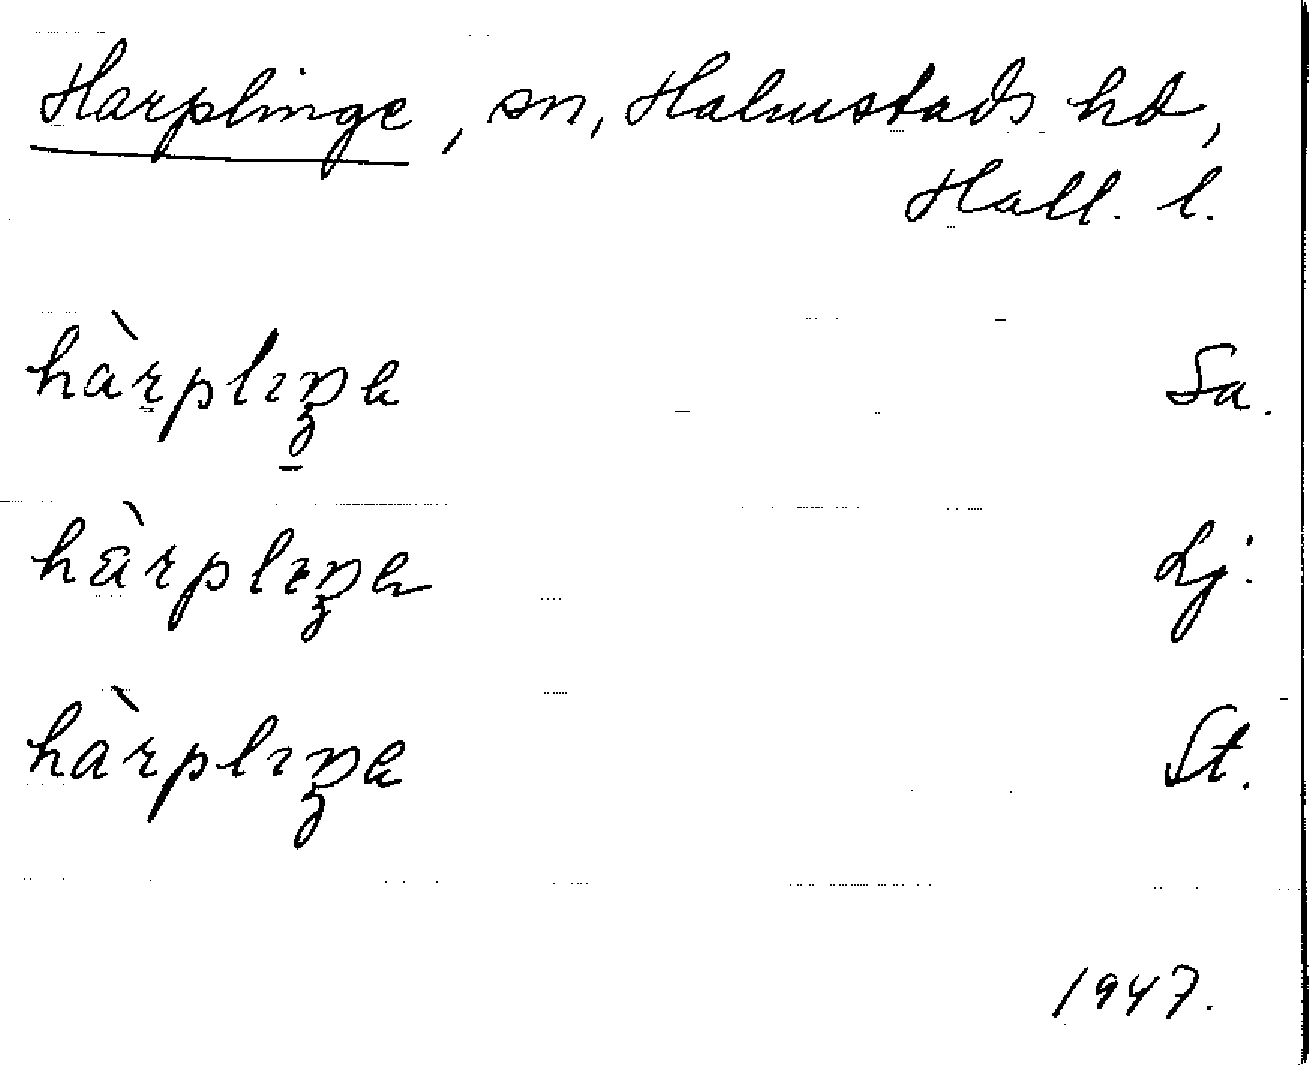 Harplinge, sn, Halmstads hd,
Hall. l.
hàrplıŋə Sa.
hàrplıŋə Lj.
hàrplıŋə St.
1947.